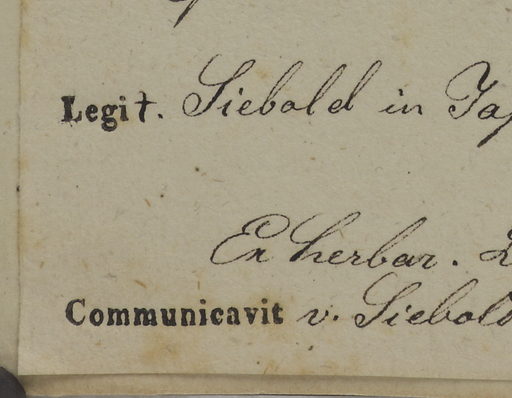 Legit. Siebold in Jap
Ex herbar.
Communicavit v. Siebold